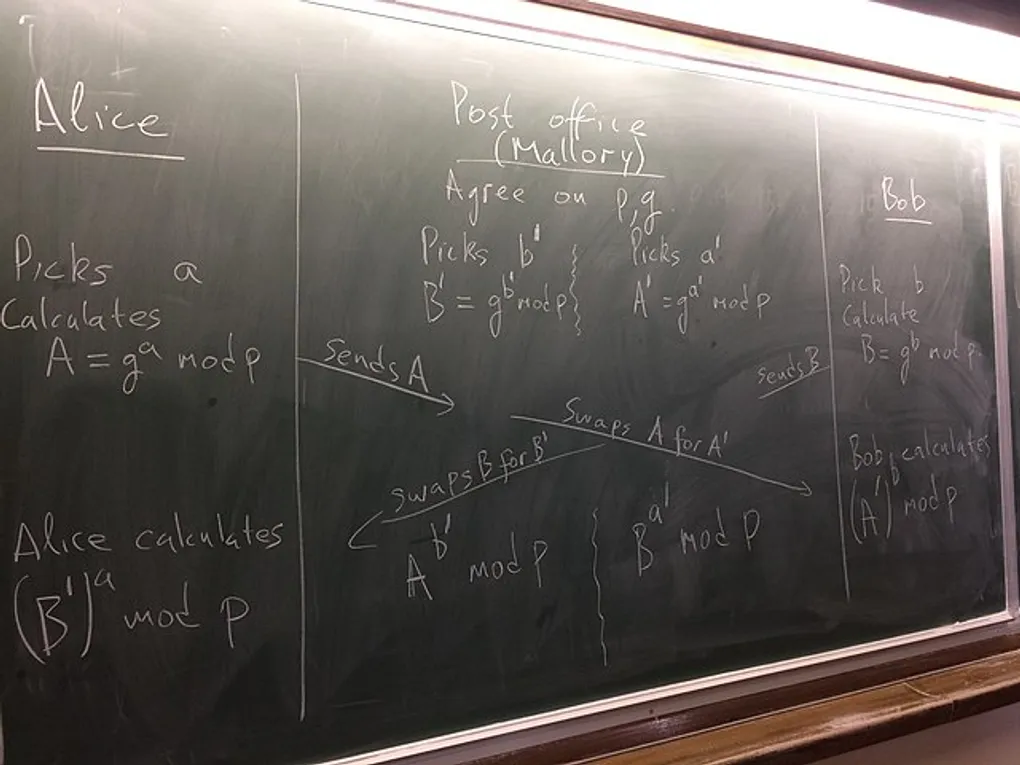 Alice
Picks a
Calculates
A = gᵃ mod p
Alice calculates
(B')ᵃ mod p
Post office
(Mallory)
Agree on p,g.
Picks b'
B' = gᵇ' mod p
Picks a'
A' = gᵃ' mod p
Sends A
sends B
Swaps A for A'
swaps B for B'
Aᵇ' mod p
Bᵃ' mod p
Bob
Pick b
Calculate
B = gᵇ mod p.
Bob calculates
(A')ᵇ mod p